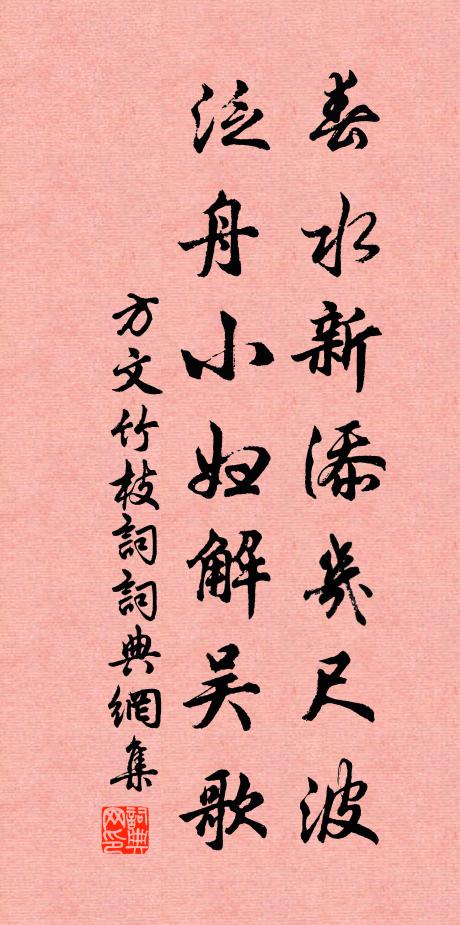 春水新添幾尺波
泛舟小妇解吴歌
方文竹枝詞詞典網集
詞典网印